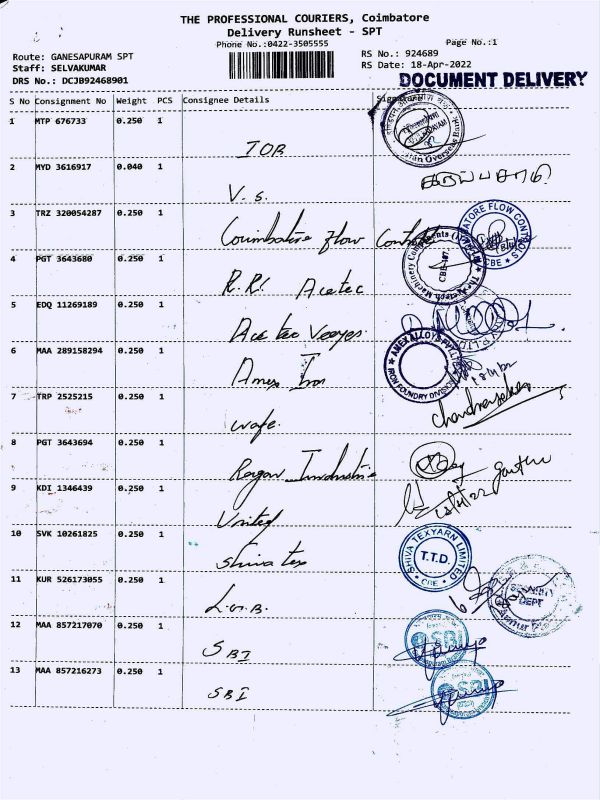 THE PROFESSIONAL COURIERS, Coimbatore
Delivery Runsheet - SPT
Phone No.:0422-3505555
Page No.:1
Route: GANESAPURAM SPT
RS No.: 924689
Staff: SELVAKUMAR
RS Date: 18-Apr-2022
DRS No.: DCJB92468901
DOCUMENT DELIVERY
S No Consignment No Weight PCS Consignee Details Signature
1 MTP 676733 0.250 1
IOB
2 MYD 3616917 0.040 1
V. S.
3 TRZ 320054287 0.250 1
Coimbatore Flow Controls
4 PGT 3643680 0.250 1
R.R. Acetec
5 EDQ 11269189 0.250 1
Ace tec
6 MAA 289158294 0.250 1
Amex Iron
7 TRP 2525215 0.250 1
Chandrasekar
wafe.
8 PGT 3643694 0.250 1
9 KDI 1346439 0.250 1
United
10 SVK 10261825 0.250 1
Shiva tex
SHIVA TEXYARN LIMITED
T.T.D.
CBE
11 KUR 526173055 0.250 1
SECURITY
DEPT
12 MAA 857217070 0.250 1
SBI
SBI
13 MAA 857216273 0.250 1
SBI
SBI
AMEX ALLOYS PVT LTD
IRON FOUNDRY DIVISION